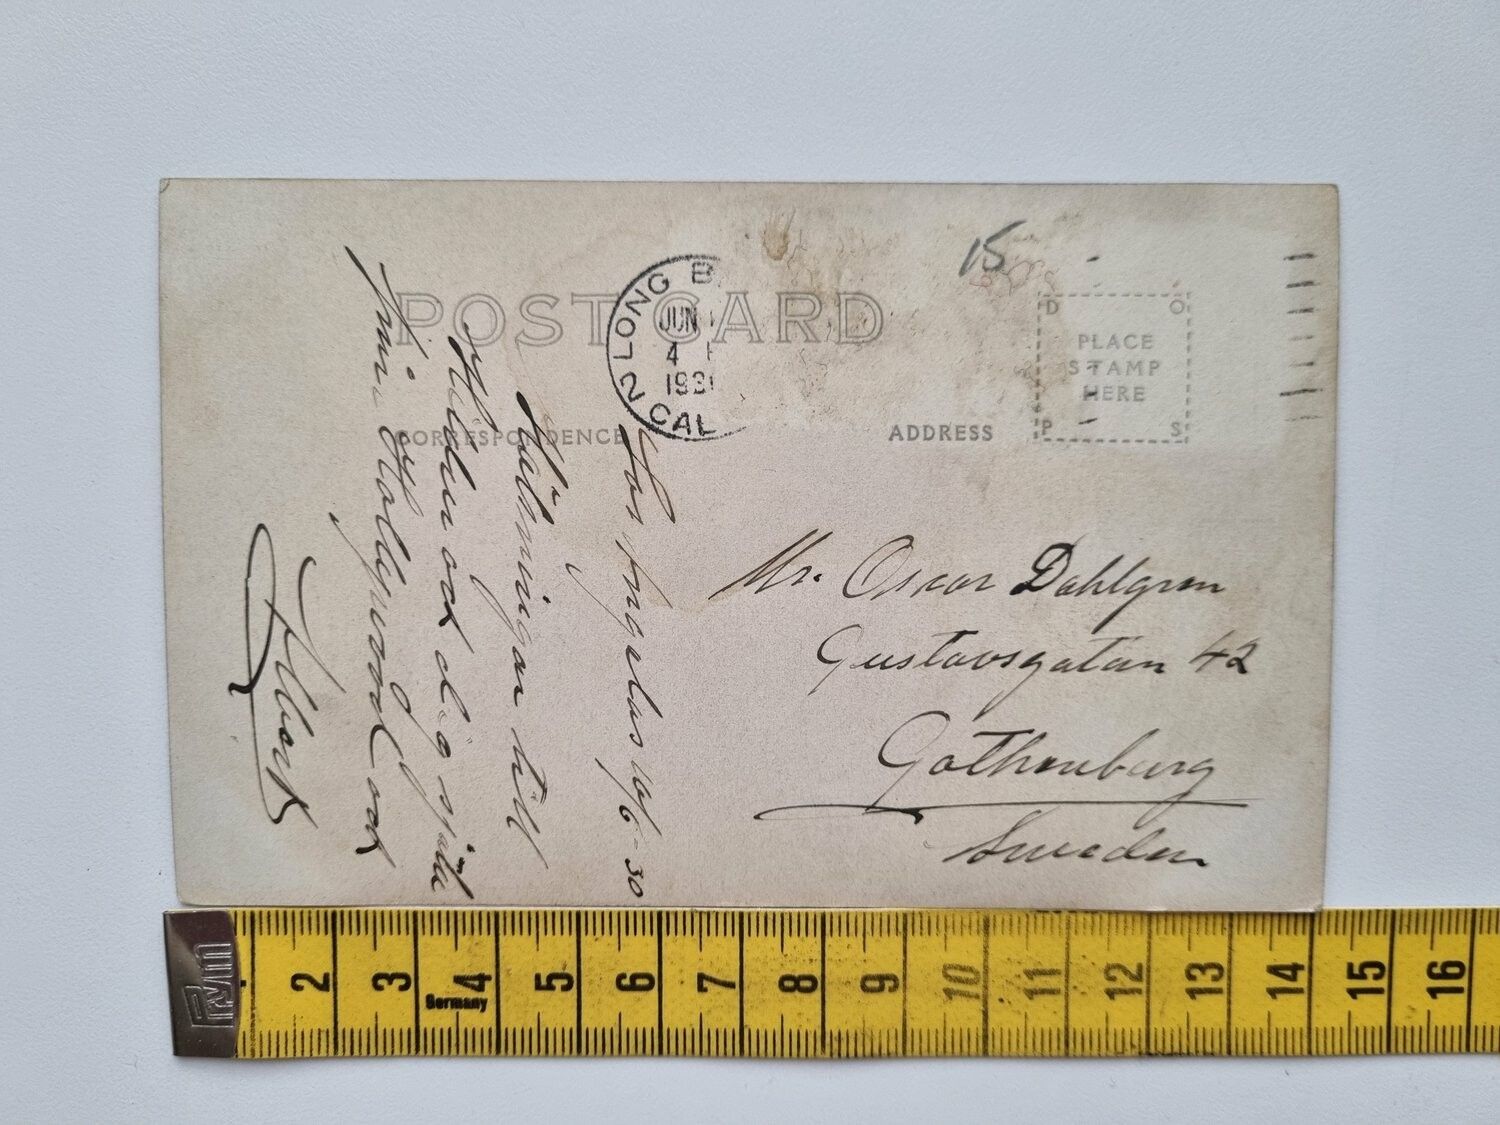 POST CARD
15
2 LONG B
JUN
4
193
CAL
CORRESPONDENCE
ADDRESS
D O
PLACE
STAMP
HERE
P S
Los Angelas
Hälsningar till
och dig själv
från Hollywood och
Mr. Oscar Dahlgren
Gustavsgatan 42
Gothenburg
Sweden
Prym
2 3 4 5 6 7 8 9 10 11 12 13 14 15 16
Germany